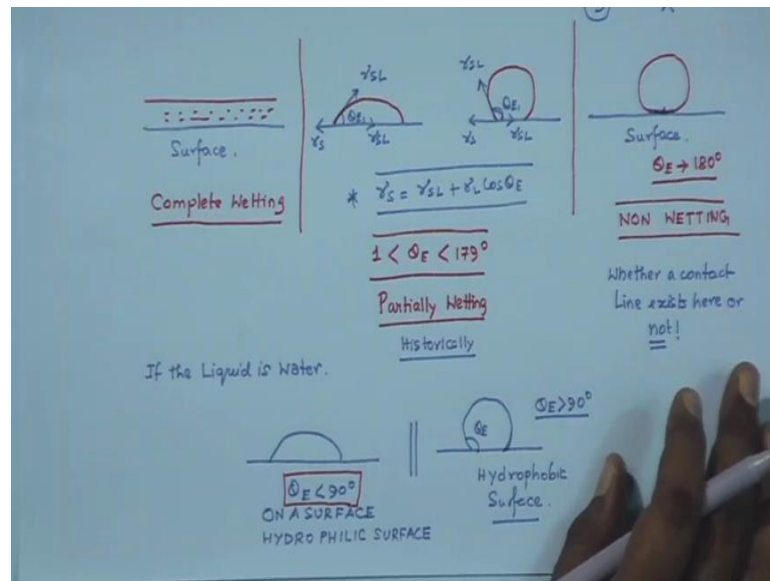 Surface.
Complete Wetting
γSL
θE1
γS
γSL
γSL
θE1
γS
γSL
* γS = γSL + γL cosθE
1 < θE < 179°
Partially Wetting
Historically
Surface.
θE → 180°
NON WETTING
Whether a contact
Line exists here or
not!
If the Liquid is Water.
θE < 90°
ON A SURFACE
HYDRO PHILIC SURFACE
θE
θE > 90°
Hydrophobic
Surface.